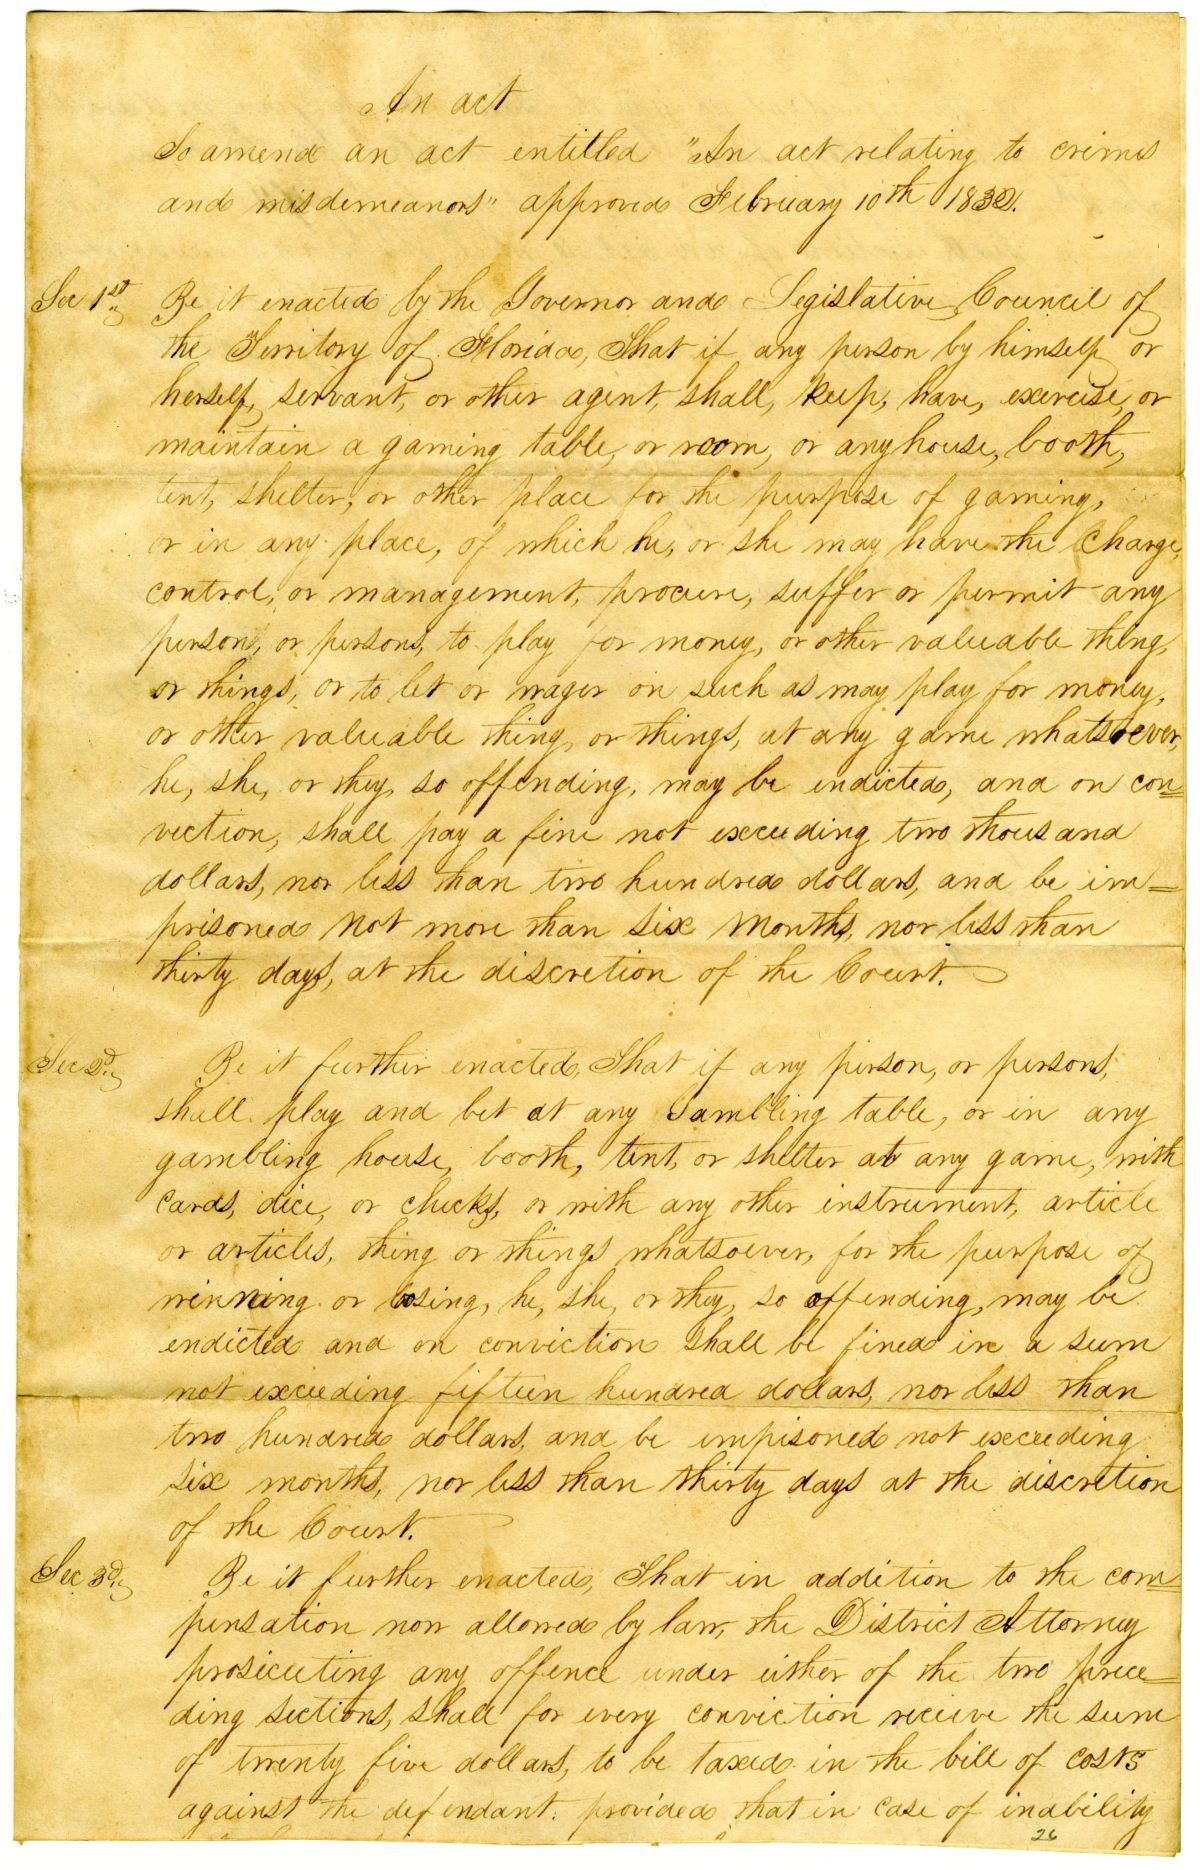 An act
To amend an act entitled "An act relating to crimes
and misdemeanors" approved February 10th 1832.
Sec 1st, Be it enacted by the Governor and Legislative Council of
the Territory of Florida, That if any person by himself or
herself, servant, or other agent, shall, keep, have, exercise, or
maintain a gaming table, or room, or any house, booth,
tent, shelter, or other place for the purpose of gaming,
or in any place, of which he, or she may have the Charge,
control, or management, procure, suffer or permit any
person, or persons, to play for money, or other valuable thing,
or things, or to bet or wager on such as may play for money,
or other valuable thing, or things, at any game whatsoever,
he, she, or they, so offending, may be indicted, and on con=
viction, shall pay a fine not exceeding two thousand
dollars, nor less than two hundred dollars, and be im=
prisoned not more than six months, nor less than
thirty days, at the discretion of the Court.
Sec 2d, Be it further enacted, That if any person, or persons,
shall play and bet at any Gambling table, or in any
gambling house, booth, tent, or shelter at any game, with
cards, dice, or checks, or with any other instrument, article
or articles, thing or things whatsoever, for the purpose of
winning or losing, he, she, or they, so offending, may be
endicted and on conviction shall be fined in a sum
not exceeding fifteen hundred dollars, nor less than
two hundred dollars, and be impisoned not exceeding
six months, nor less than thirty days at the discretion
of the Court.
Sec 3d, Be it further enacted, That in addition to the com=
pensation now allowed by law, the District Attorney
prosecuting any offence under either of the two prece=
ding sections, shall for every conviction receive the sum
of twenty five dollars, to be taxed in the bill of costs
against the defendant. provided that in case of inability
26